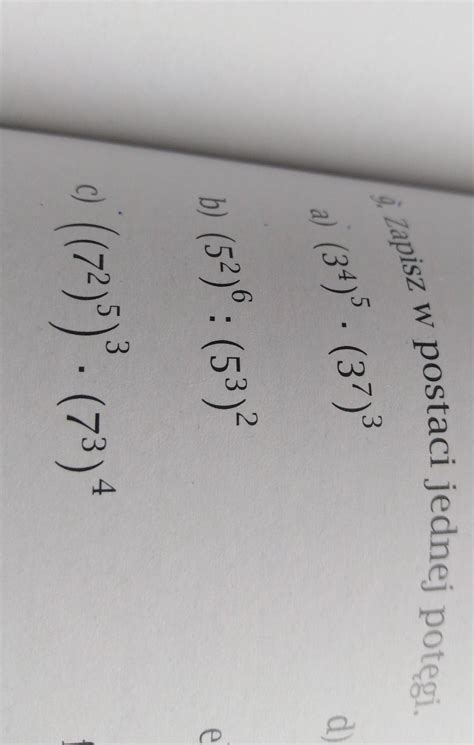 9. Zapisz w postaci jednej potęgi.
a) (3⁴)⁵ · (3⁷)³
d)
b) (5²)⁶ : (5³)²
e
c) ((7²)⁵)³ · (7³)⁴